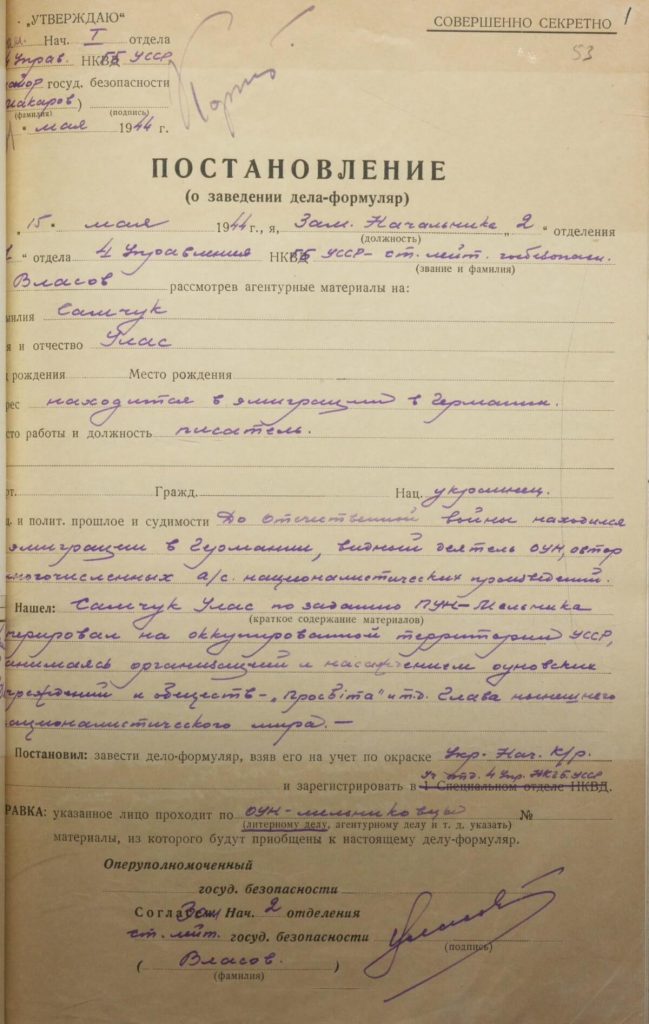 „УТВЕРЖДАЮ"
СОВЕРШЕННО СЕКРЕТНО 1
53
Нач. I отдела
4 Управ. НКГБ УССР
майор госуд. безопасности
)
(фамилия) (подпись)
" мая 1944 г.
ПОСТАНОВЛЕНИЕ
(о заведении дела-формуляр)
„15" мая 1944 г., я, Зам. Начальника „2" отделения
(должность)
1 " отдела 4 Управления НКГБ УССР - ст. лейт. госбезопасн.
(звание и фамилия)
Власов рассмотрев агентурные материалы на:
милия Самчук
я и отчество Улас
рождения Место рождения
рес находится в эмиграции в Германии.
сто работы и должность писатель.
рт. Гражд. Нац. украинец.
ц. и полит. прошлое и судимости До отечественной войны находился
эмиграции в Германии, видный деятель ОУН, автор
многочисленных а/с. националистических произведений.
Нашел: Самчук Улас по заданию ПУН-Мельника
(краткое содержание материалов)
оперировал на оккупированной территории УССР,
занимаясь организацией и насаждением оуновских
учреждений и обществ - „Просвіта" и тд. Глава нынешнего
националистического мира. —
Постановил: завести дело-формуляр, взяв его на учет по окраске Укр. Нац. К/р.
Уч. отд. 4 Упр. НКГБ УССР
и зарегистрировать в 1 Специальном отделе НКВД.
РАВКА: указанное лицо проходит по ОУН-мельниковцы №
(литерному делу, агентурному делу и т. д. указать)
материалы, из которого будут приобщены к настоящему делу-формуляр.
Оперуполномоченный
госуд. безопасности
Согласен Зам Нач. 2 отделения
ст. лейт. госуд. безопасности
(подпись)
( Власов. )
(фамилия)